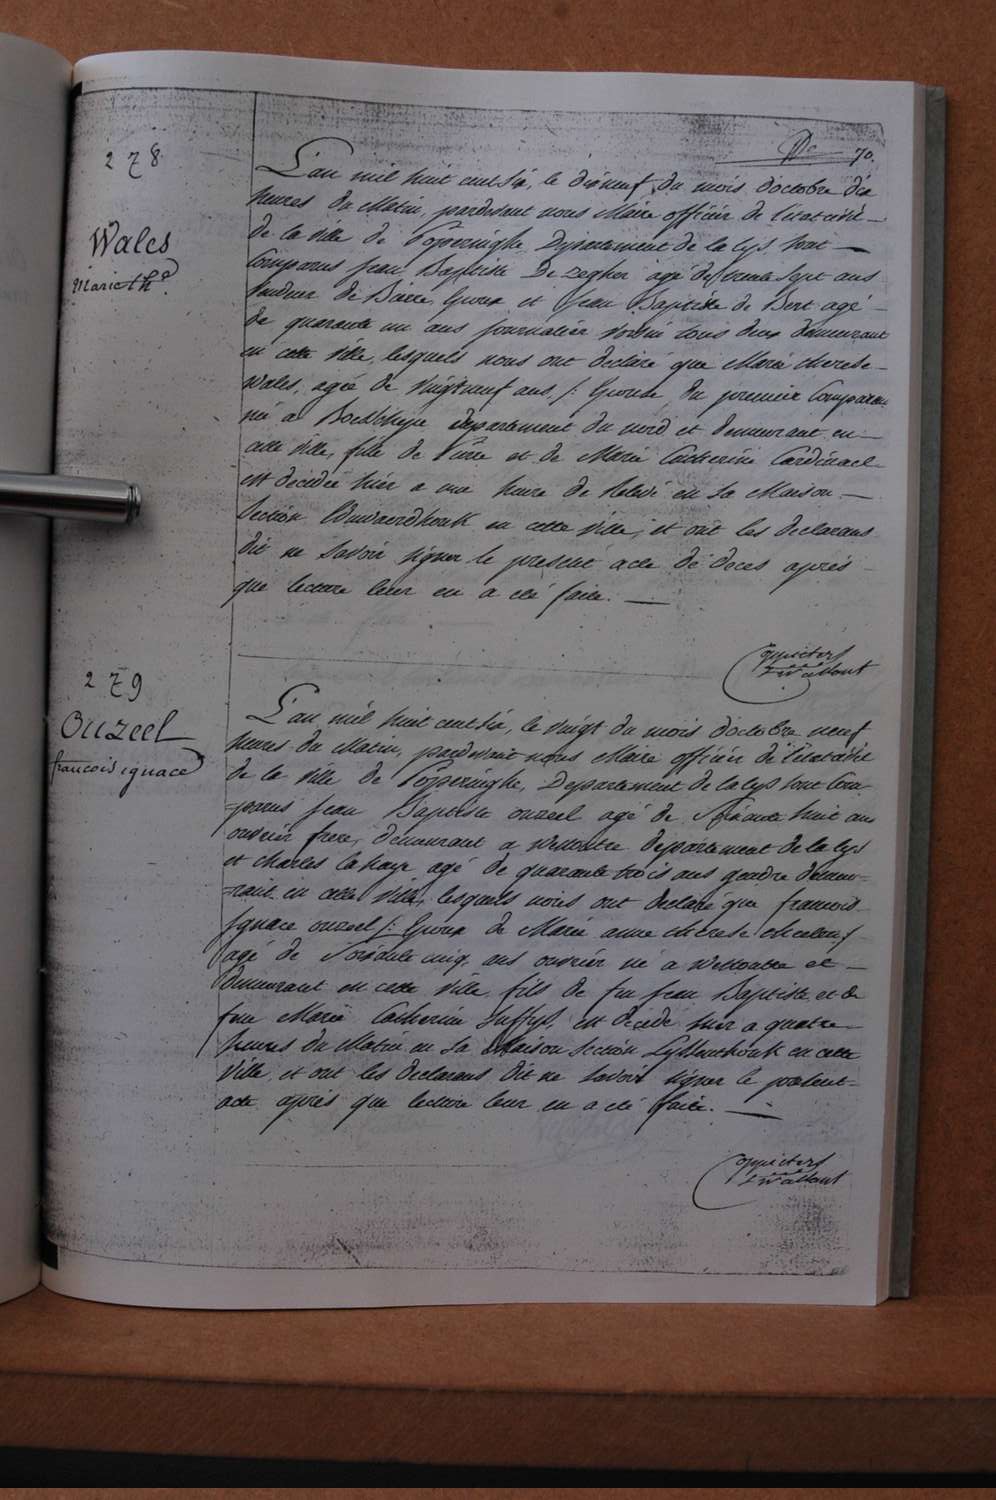 70.
278
Wales
Marie th.
L'an mil huit cent six, le dixneuf du mois d'octobre dix
heures du Matin, pardevant nous Maire officier de l'état civil
de la ville de Poperinghe, Departement de la Lys sont
comparus Jean Baptiste De zegher agé de trente sept ans
de Bierre, Epoux et Jean Baptiste de Bert agé
de quarante un ans journalier voisin tous deux demeurant
en cette ville, lesquels nous ont declaré que Marie therese
Wales, agée de vingtneuf ans /: Epouse du premier Comparant
né a Boeschepe departement du nord et demeurant en
cette ville, fille de Pierre et de Marie Catherine Cardinael
est decidée hier a une heure de relevé en sa Maison
Section en cette ville, et ont les declarans
dit ne savoir signer le present acte de deces après
que lecture leur en a été faite.
279
Ouzeel
francois ignace
L'an mil huit cent six, le vingt du mois d'octobre neuf
heures du Matin, pardevant nous Maire officier de l'état civil
de la ville de Poperinghe, Departement de la Lys sont Com-
=parus Jean Baptiste ouzeel agé de huit ans
ouvrier frere, demeurant a Westoutre departement de la Lys
et Charles la haye agé de quarante trois ans gendre demeu-
=rant en cette ville, lesquels nous ont declaré que francois
Ignace ouzeel /: Epoux de Marie anne therese
agé de cinq ans ouvrier né a Westoutre et
demeurant en cette ville fils de feu Jean Baptiste et de
feue Marie Catherine est décédé hier a quatre
heures du Matin en sa Maison Section en cette
Ville, et ont les declarans dit ne savoir signer le present
acte après que lecture leur en a été faite.